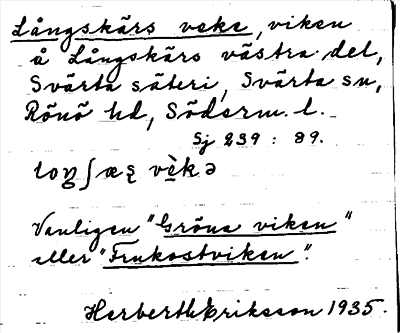 Långskärs veke, viken
å Långskärs västra del,
Svärta säteri, Svärta sn,
Rönö hd, Söderm. l.
Sj 239 : 89.
vèkə
Vanligen "Gröna viken"
eller "Frukostviken".
Herberth Eriksson 1935.